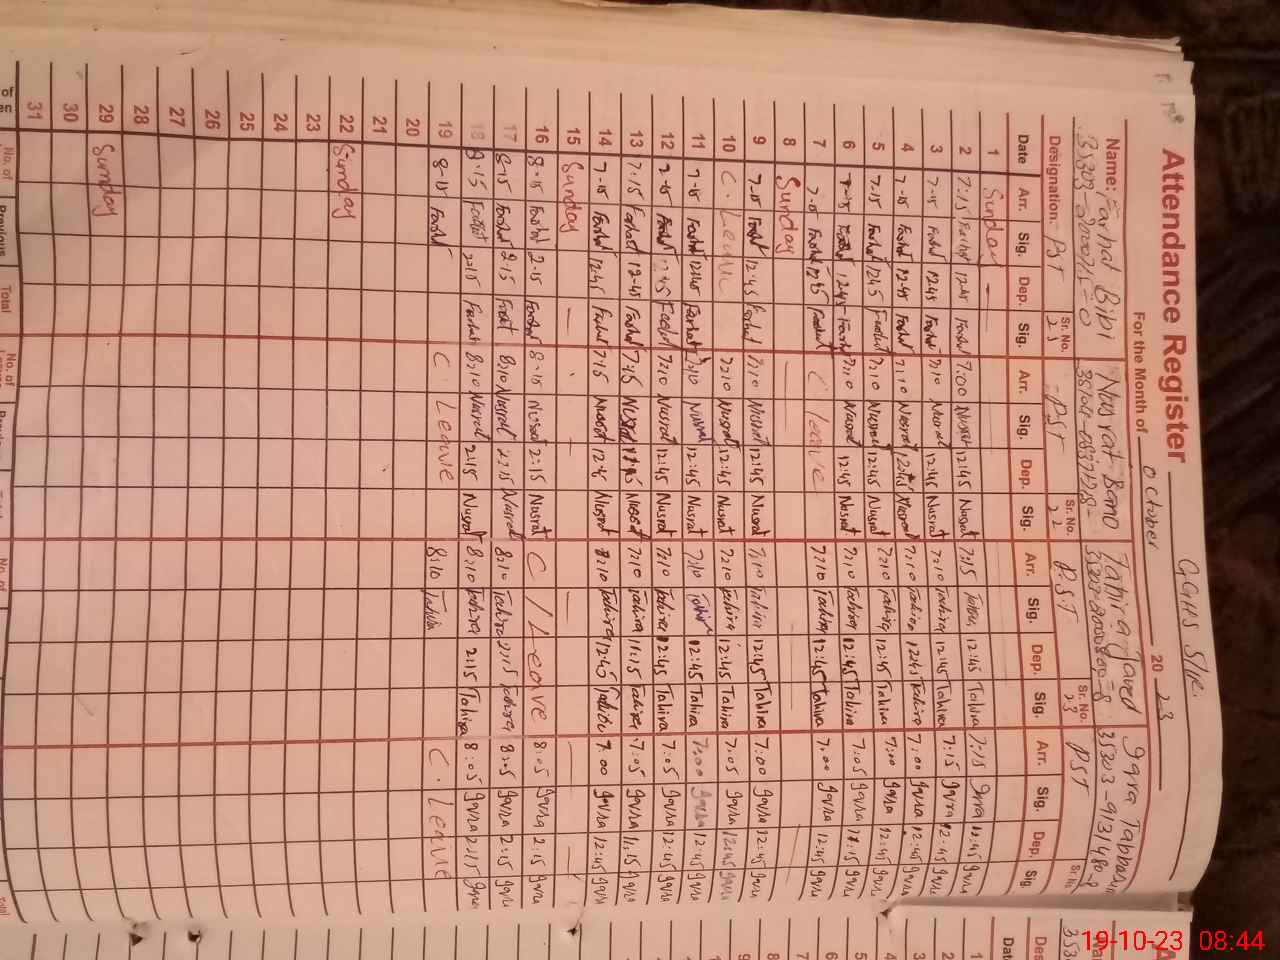 GGHS S/R.
Attendance Register
For the Month of October 20 23
Name: Farhat Bibi Nusrat Bano Tahira Javed Iqra Tabbasum
Designation: PST Sr. No. 21 PST Sr. No. 22 PST Sr. No. 23 PST Sr. No.
Date Arr. Sig. Dep. Sig. Arr. Sig. Dep. Sig. Arr. Sig. Dep. Sig. Arr. Sig. Dep. Sig.
1 Sunday
2 7:15 Farhat 12:45 Farhat 7:00 Nusrat 12:45 Nusrat 7:15 Tahira 12:45 Tahira 7:15 Iqra 12:45 Iqra
3 7:15 Farhat 12:45 Farhat 7:10 Nusrat 12:45 Nusrat 7:10 Tahira 12:45 Tahira 7:15 Iqra 12:45 Iqra
4 7:15 Farhat 12:45 Farhat 7:10 Nusrat 12:45 Nusrat 7:10 Tahira 12:45 Tahira 7:00 Iqra 12:45 Iqra
5 7:15 Farhat 12:45 Farhat 7:10 Nusrat 12:45 Nusrat 7:10 Tahira 12:45 Tahira 7:00 Iqra 12:45 Iqra
6 7:15 Farhat 12:45 Farhat 7:10 Nusrat 12:45 Nusrat 7:10 Tahira 12:45 Tahira 7:05 Iqra 11:15 Iqra
7 7:15 Farhat 12:45 Farhat C leave 7:10 Tahira 12:45 Tahira 7:00 Iqra 12:45 Iqra
8 Sunday
9 7:15 Farhat 12:45 Farhat 7:10 Nusrat 12:45 Nusrat 7:10 Tahira 12:45 Tahira 7:00 Iqra 12:45 Iqra
10 C. Leave 7:10 Nusrat 12:45 Nusrat 7:10 Tahira 12:45 Tahira 7:05 Iqra 12:45 Iqra
11 7:15 Farhat 12:45 Farhat 7:10 Nusrat 12:45 Nusrat 7:10 Tahira 12:45 Tahira 7:00 Iqra 12:45 Iqra
12 7:15 Farhat 12:45 Farhat 7:10 Nusrat 12:45 Nusrat 7:10 Tahira 12:45 Tahira 7:05 Iqra 12:45 Iqra
13 7:15 Farhat 12:45 Farhat 7:45 Nusrat Nusrat 7:10 Tahira 11:15 Tahira 7:05 Iqra 11:15 Iqra
14 7:15 Farhat 12:45 Farhat 7:15 Nusrat 12:45 Nusrat 7:10 Tahira 12:45 Tahira 7:00 Iqra 12:45 Iqra
15 Sunday
16 8:15 Farhat 2:15 Farhat 8:15 Nusrat 2:15 Nusrat C/Leave 8:05 Iqra 2:15 Iqra
17 8:15 Farhat 2:15 Farhat 8:10 Nusrat 2:15 Nusrat 8:10 Tahira 2:15 Tahira 8:05 Iqra 2:15 Iqra
18 8:15 Farhat 2:15 Farhat 8:10 Nusrat 2:15 Nusrat 8:10 Tahira 2:15 Tahira 8:05 Iqra 2:15 Iqra
19 8:15 Farhat C. Leave 8:10 Tahira C. Leave
20
21
22 Sunday
23
24
25
26
27
28
29 Sunday
30
31
No. of Previous Total No. of
19-10-23 08:44